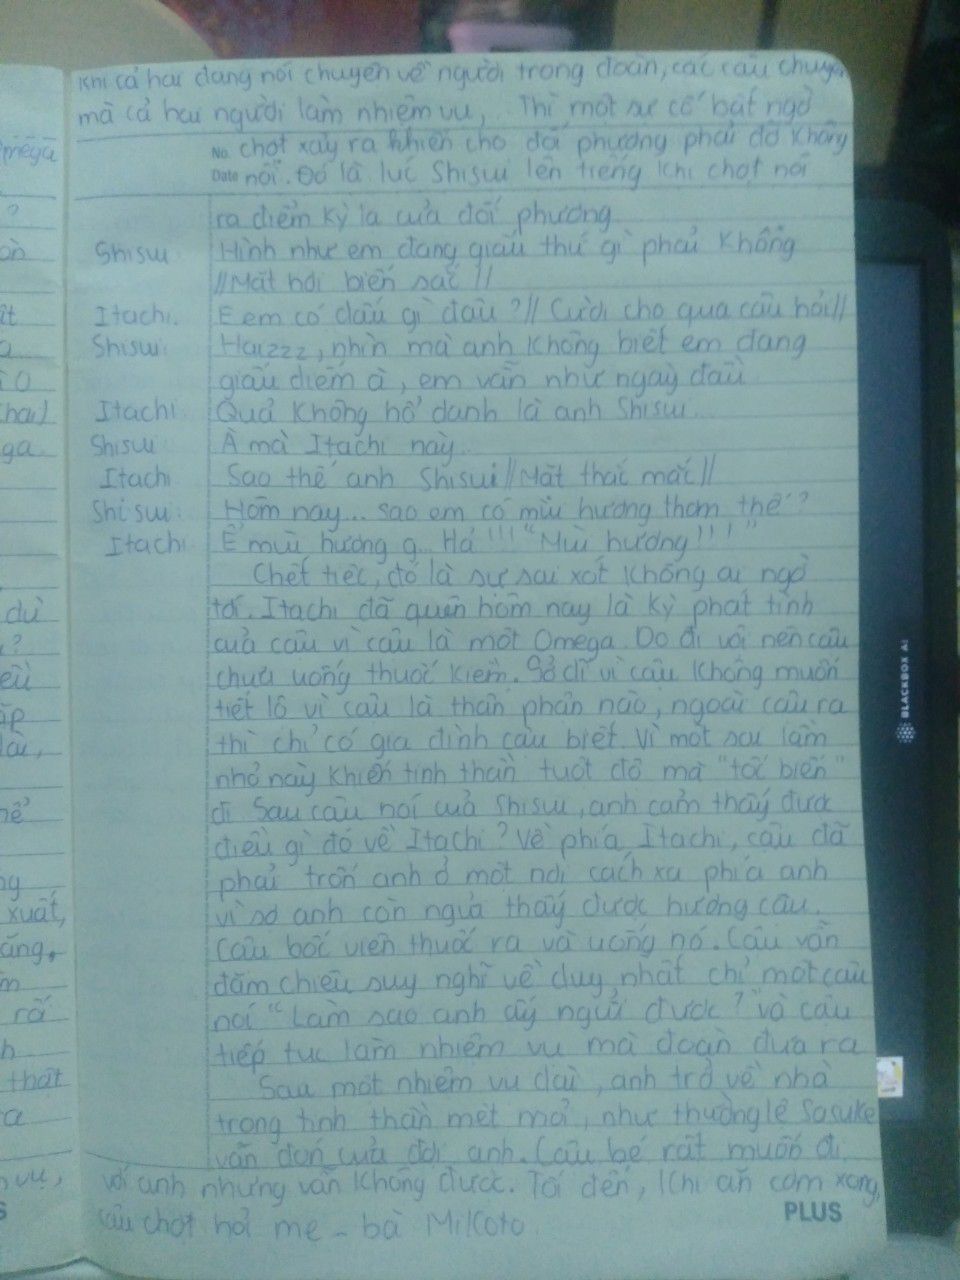 Khi cả hai đang nói chuyện về người trong đoàn, các câu chuyện
mà cả hai người làm nhiệm vụ, Thì một sự cố bất ngờ
No. chợt xảy ra khiến cho đối phương phải đơ không
Date nổi. Đó là lúc Shisui lên tiếng khi chợt nói
ra điểm kỳ lạ của đối phương
Shisui: Hình như em đang giấu thứ gì phải không
//Mặt hơi biến sắc//
Itachi. E em có dấu gì đâu?// Cười cho qua câu hỏi//
Shisui: Haizzz, nhìn mà anh không biết em đang
giấu diếm à, em vẫn như ngày đầu
Itachi: Quả không hổ danh là anh Shisui
Shisui: À mà Itachi này..
Itachi Sao thế anh Shisui//Mặt thắc mắc//
Shisui: Hôm nay... sao em có mùi hương thơm thế?
Itachi: Ể mùi hương g.. Hả!!! "Mùi hương!!!"
Chết tiệc, đó là sự sai xót không ai ngờ
tới. Itachi đã quên hôm nay là kỳ phát tình
của cậu vì cậu là một Omega. Do đi vội nên cậu
chưa uống thuốc kiềm. Sở dĩ vì cậu không muốn
tiết lộ vì cậu là thân phận nào, ngoài cậu ra
thì chỉ có gia đình cậu biết. Vì một sai lầm
nhỏ này khiến tinh thần tuột độ mà "tốc biến"
đi. Sau câu nói của Shisui, anh cảm thấy được
điều gì đó về Itachi? Về phía Itachi, cậu đã
phải trốn anh ở một nơi cách xa phía anh
vì sợ anh còn ngửa thấy được hương cậu.
Cậu bốc viên thuốc ra và uống nó. Cậu vẫn
đăm chiêu suy nghĩ về duy nhất chỉ một câu
nói "Làm sao anh ấy ngửi được?" và cậu
tiếp tục làm nhiệm vụ mà đoàn đưa ra
Sau một nhiệm vụ dài, anh trở về nhà
trong tinh thần mệt mỏi, như thường lệ Sasuke
vẫn đón cửa đợi anh. Cậu bé rất muốn đi
với anh nhưng vẫn không được. Tối đến, khi ăn cơm xong,
cậu chợt hỏi mẹ - bà Mikoto.
PLUS
BLACKBOX AI
omega
?
ật
a
chai)
ga
dù
?
xuất,
ắng,
m
rồi
h
thật
ra
vụ,
S